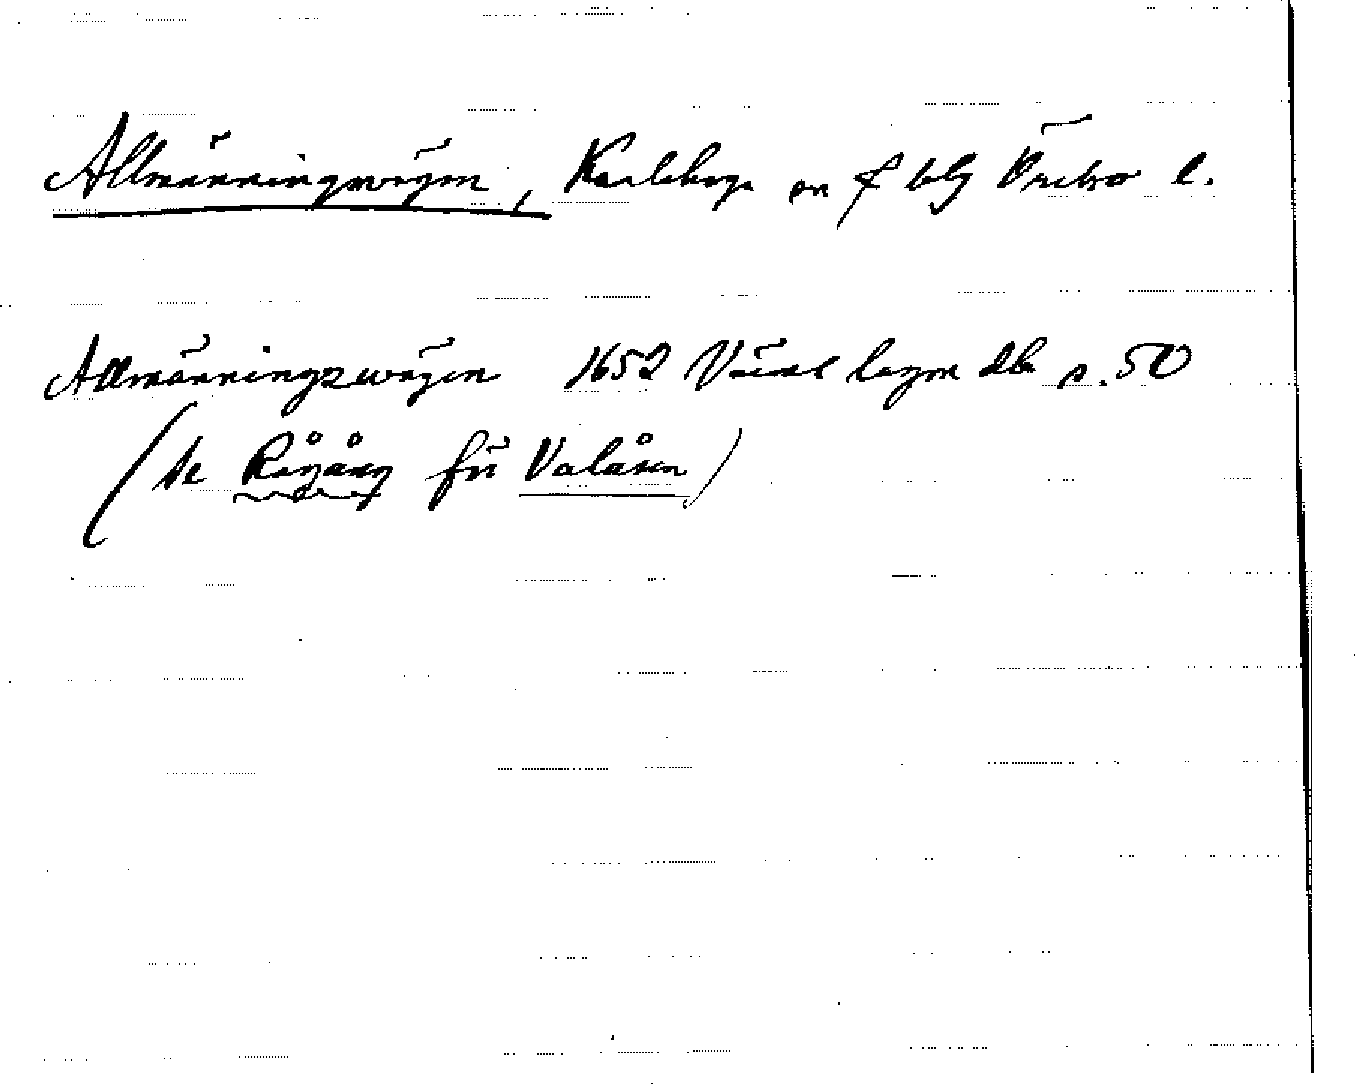 Allmänningsvägen, Karlskoga sn f blg Örebro l.
Allmänningzwägen 1652 Värml lagm db s. 50
(se Rågång för Valåsen)